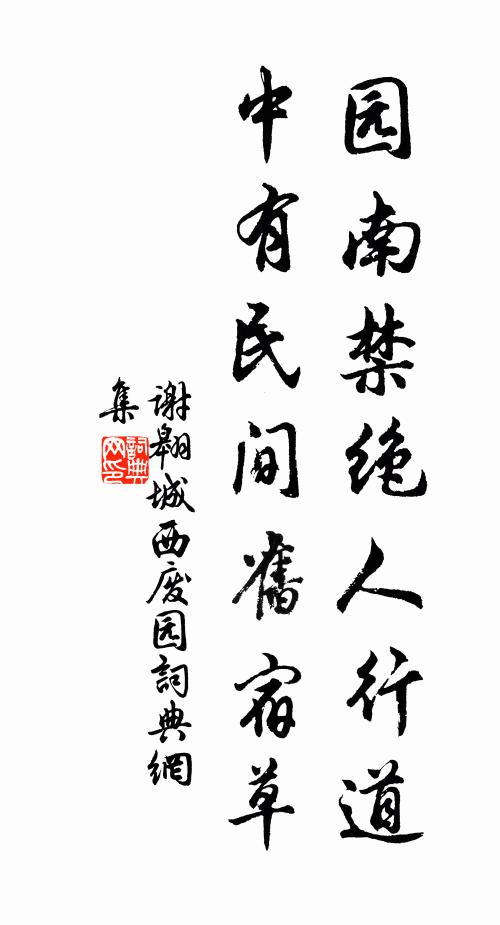 园南禁绝人行道
中有民间舊宿草
谢翱城西废园詞典網
集
詞典網印